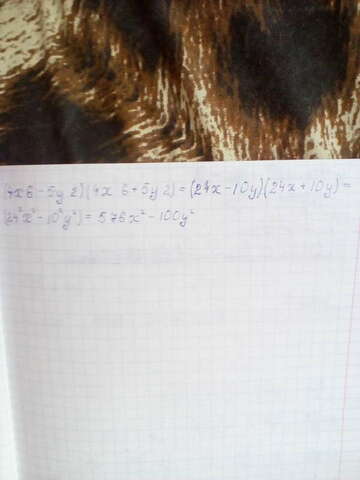 (4x 6 - 5y 2)(4x 6 + 5y 2) = (24x - 10y)(24x + 10y) =
(24²x² - 10²y²) = 576x² - 100y²